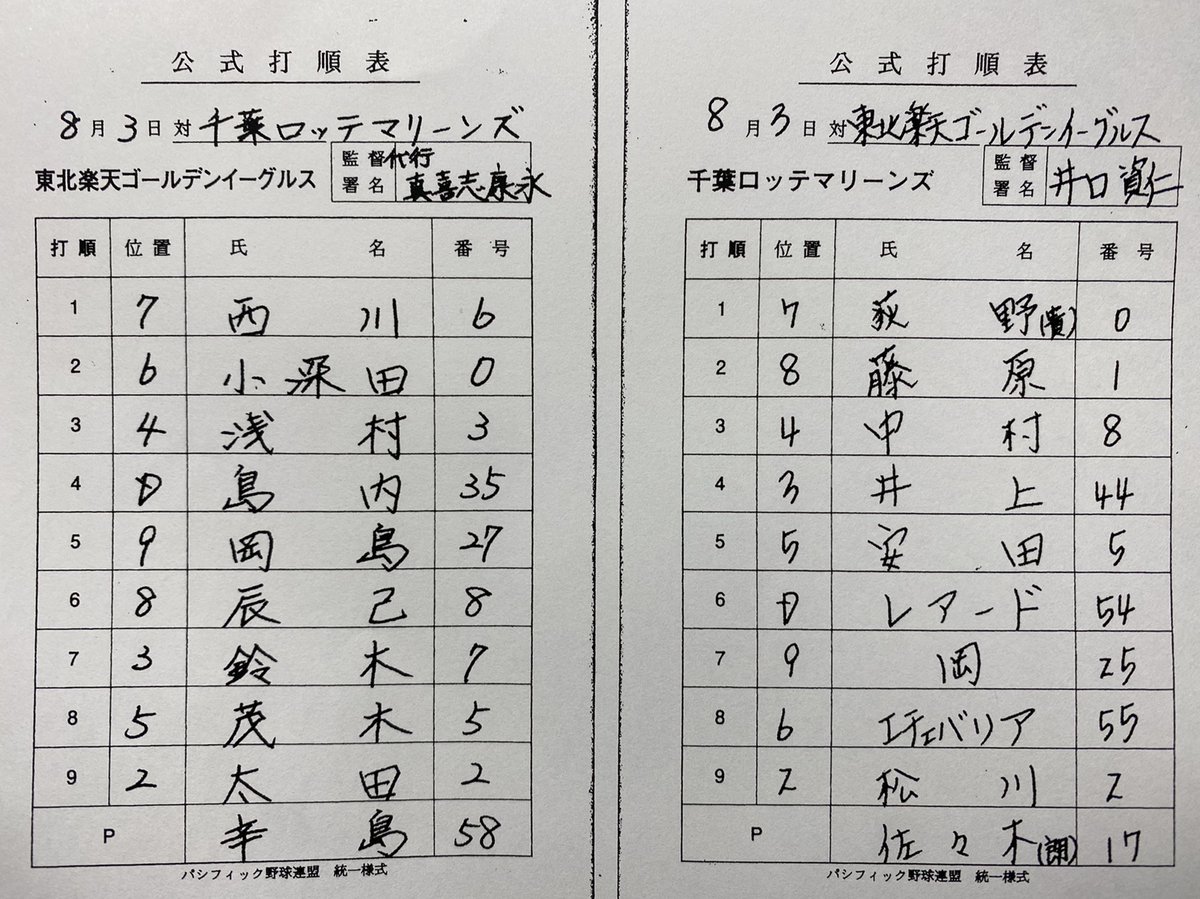 公式打順表
8月3日対千葉ロッテマリーンズ
東北楽天ゴールデンイーグルス
監督代行
署名 真喜志康永
打順 位置 氏名 番号
1 7 西川 6
2 6 小深田 0
3 4 浅村 3
4 D 島内 35
5 9 岡島 27
6 8 辰己 8
7 3 鈴木 7
8 5 茂木 5
9 2 太田 2
P 辛島 58
パシフィック野球連盟 統一様式
公式打順表
8月3日対東北楽天ゴールデンイーグルス
千葉ロッテマリーンズ
監督
署名 井口資仁
打順 位置 氏名 番号
1 7 荻野(貴) 0
2 8 藤原 1
3 4 中村 8
4 3 井上 44
5 5 安田 5
6 D レアード 54
7 9 岡 25
8 6 エチェバリア 55
9 2 松川 2
P 佐々木(朗) 17
パシフィック野球連盟 統一様式